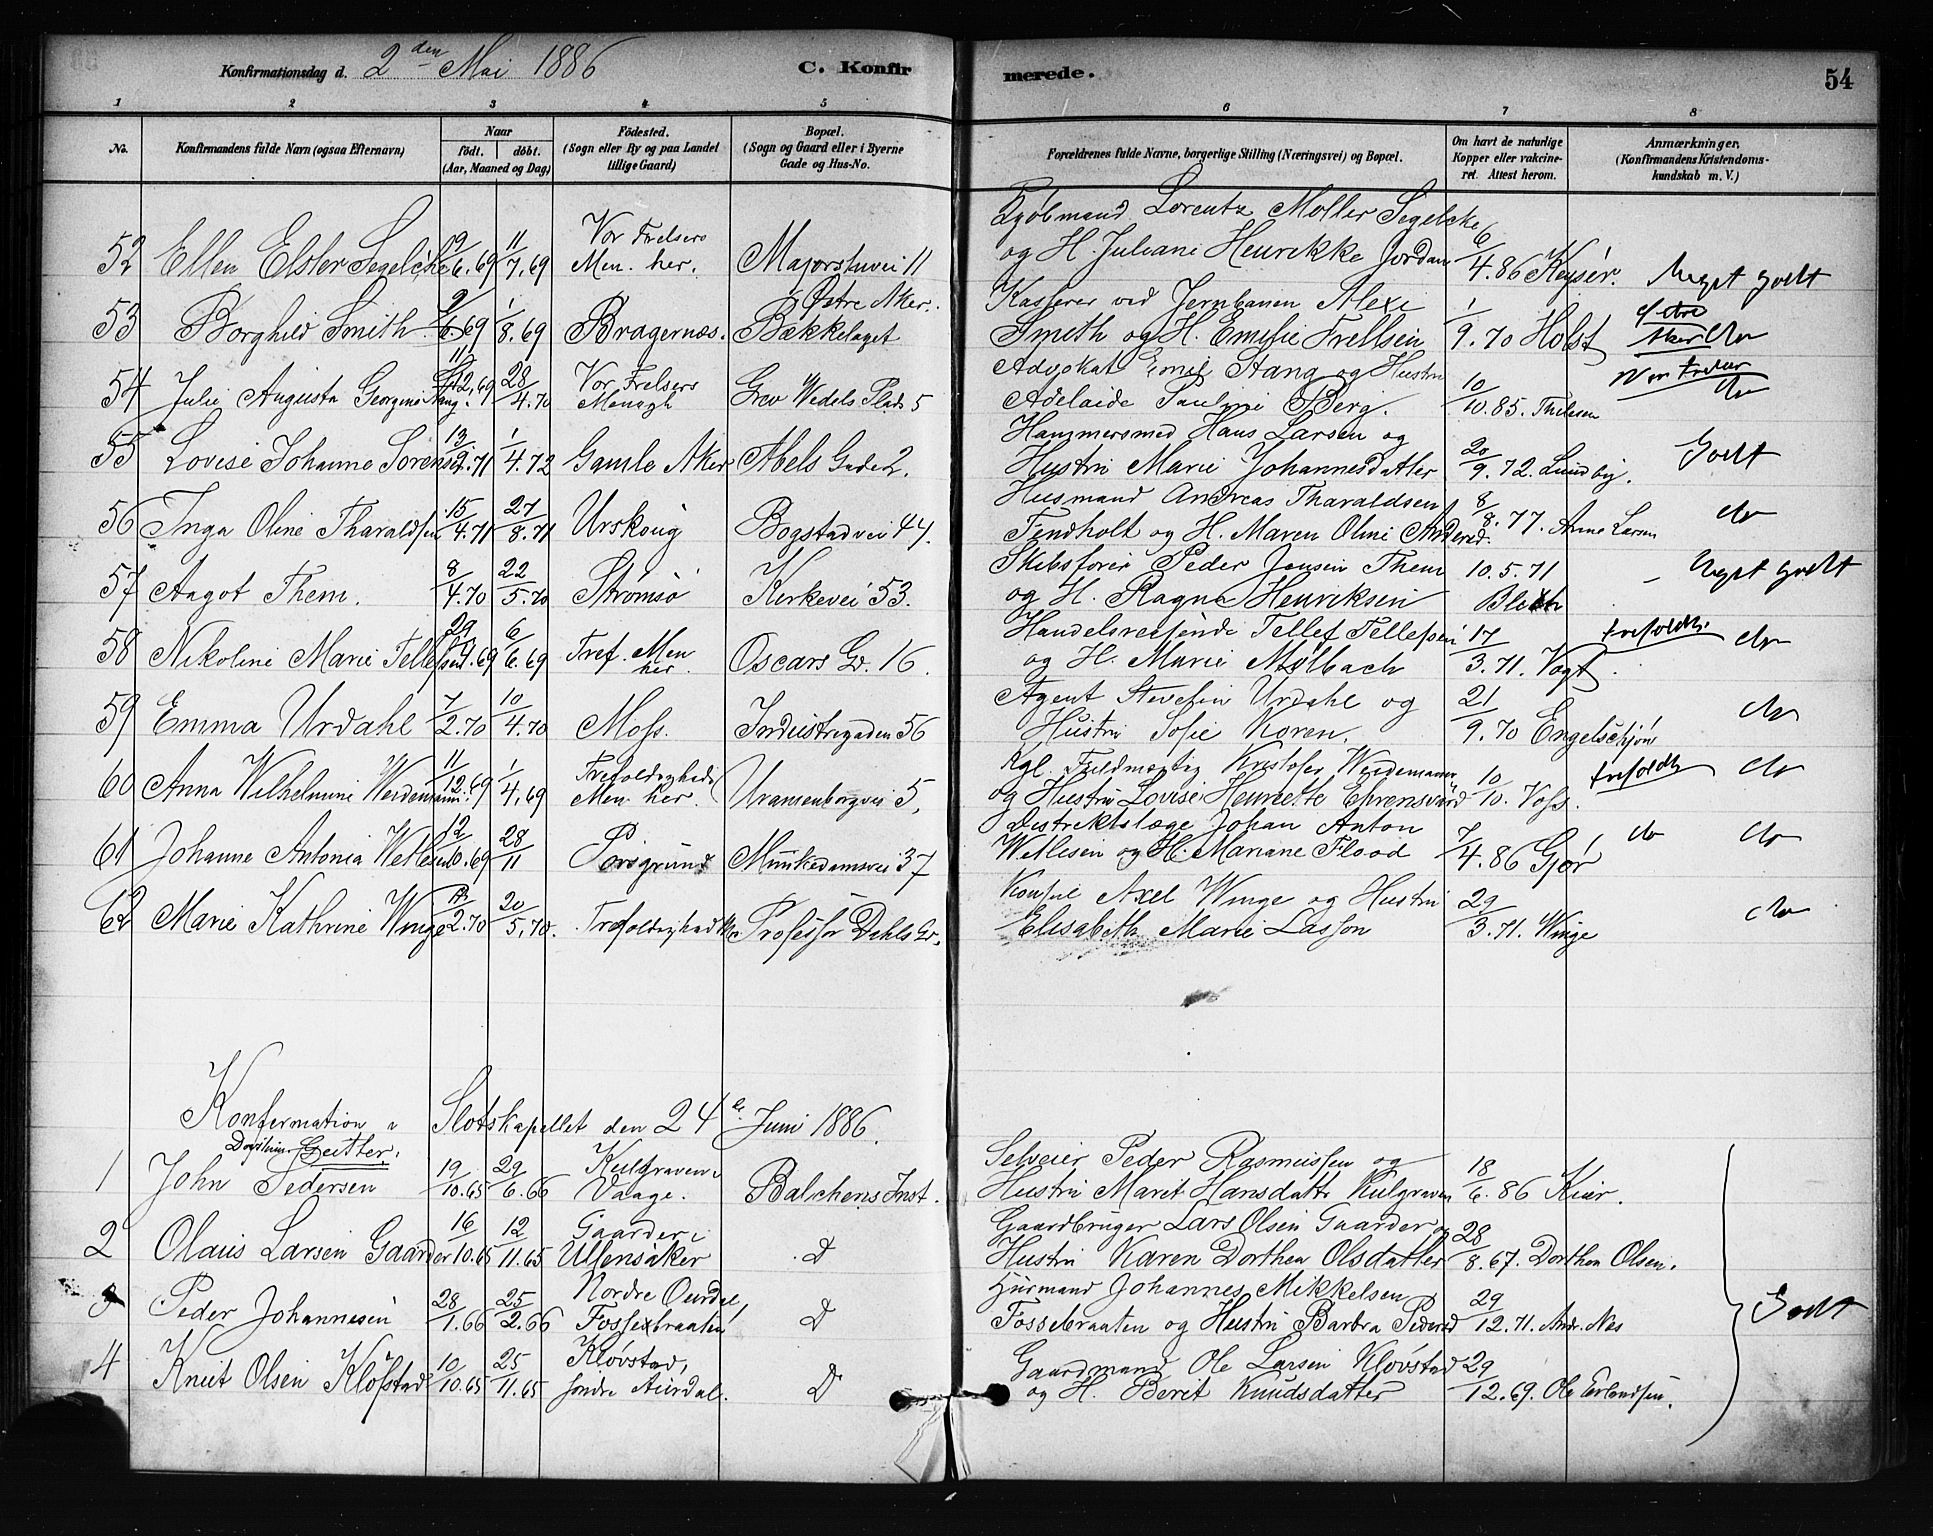 Konfirmationsdag d. 2den Mai 1886 C. Konfirmerede. 54
1 2 3 4 5 6 7 8
No. Konfirmandens fulde Navn (ogsaa Efternavn) Naar født. døbt. (Aar, Maaned og Dag) Fødested. (Sogn eller By og paa Landet tillige Gaard) Bopæl. (Sogn og Gaard eller i Byerne Gade og Hus-No. Forældrenes fulde Navne, borgerlige Stilling (Næringsvei) og Bopæl. Om havt de naturlige Kopper eller vakcineret. Attest herom. Anmærkninger, (Konfirmandens Kristendomskundskab m. V.)
Vor Frelsers Kjøbmand Lorentz Møller Segelcke
52 Ellen Elster Segelcke 6.69 11/7.69 Men. her. Majorstuvei 11 og H. Juliane Henrikke Jordan 6/4.86 Keyser. Meget godt
Østre Aker. Kasserer ved Jernbanen Alexi
53 Borghild Smith. 6.69 1/8.69 Bragernæs. Bækkelaget Smith og H. Emilie Trellsen 1/9.70 Holst do
Vor Frelsers Advokat Emil Stang og Hustru
54 Julie Augusta Georgine Stang. 12.69 28/4.70 Menigh Grev Wedels Plads 5 Adelaide Pauline Berg. 10/10.85. Thilesen Vor Frelser do
Hammersmed Hans Larsen og
55 Lovise Johanne Sørensen 13/2.71 1/4.72 Gamle Aker Abels Gade 2. Hustru Marie Johannesdatter 20/9.72. Lundby. Godt
Husmand Andreas Tharaldsen
56 Inga Oline Tharaldsen 15/4.71 27/8.71 Urskoug Bogstadvei 44. Tindholt og H. Maren Oline Andersd. 8/8.77. Anne Larsen do
Skibsfører Peder Jensen Them 10.5.71
57 Aagot Them. 8/4.70 22/5.70 Strømsø Kirkevei 53. og H. Ragna Henriksen Meget godt
Handelsreisende Tellef Tellefsen
58 Nikoline Marie Tellefsen 29/.69 6/6.69 Tref. Men her. Oscars Gd. 16. og H. Marie Mølbach 17/3.71. Vogt. trefoldh. do
Agent Urdahl og
59 Emma Urdahl 7/2.70 10/4.70 Moss. Industrigaden 56 Hustru Sofie Koren. 21/9.70 Engelschjøn do
Trefoldigheds Kgl. Fuldmægtig Kristofer Weidemann
60 Anna Wilhelmine Weidemann. 11/12.69 1/4.69 Men. her. Uranienborgvei 5, og Hustru Lovise Henriette Ehrensvärd 10/10. Voss. trefoldh do
Distriktslæge Johan Anton
61 Johanne Antonia Wetlesen 12/.69 28/11 Porsgrund Munkedamsvei 37 Wetlesen og H. Mariane Flood 7/4.86 Gjør do do
Konsul Axel Winge og Hustru
62 Marie Kathrine Winge 2.70 20/5.70. Trefoldighed Professor Dahls Gd. Elisabeth Marie Lasson 29/3.71. Winge do
Konfirmation i Slotskapellet den 24de Juni 1886.
Døvstumme
Kulgraven i Selveier Peder Rasmussen og
1 John Pedersen 19/10.65 29/6.66 Vaage. Balchens Inst. Hustru Marit Hansdatt. Kulgraven 18/6.86 Kiær.
Gaarder i Gaardbruger Lars Olsen Gaarder og
2 Olaus Larsen Gaarder 16/10.65 12/11.65 Ullensaker D Hustru Karen Dorthea Olsdatter 28/8.67. Dorthea Olsen.
Nordre Ourdal, Husmand Johannes Mikkelsen
3 Peder Johannesen 28/1.66 25/2.66 Fossebraaten D Fossebraaten og Hustru Barbra Pedersd 29/12.71. Andr. Nes Godt
Kløvstad, Gaardmand Ole Larsen Kløvstad
4 Knut Olsen Kløfstad 10/10.65 25/11.65 Søndre Aurdal. D og H. Berit Knudsdatter 29/12.69. Ole Erlandsen.